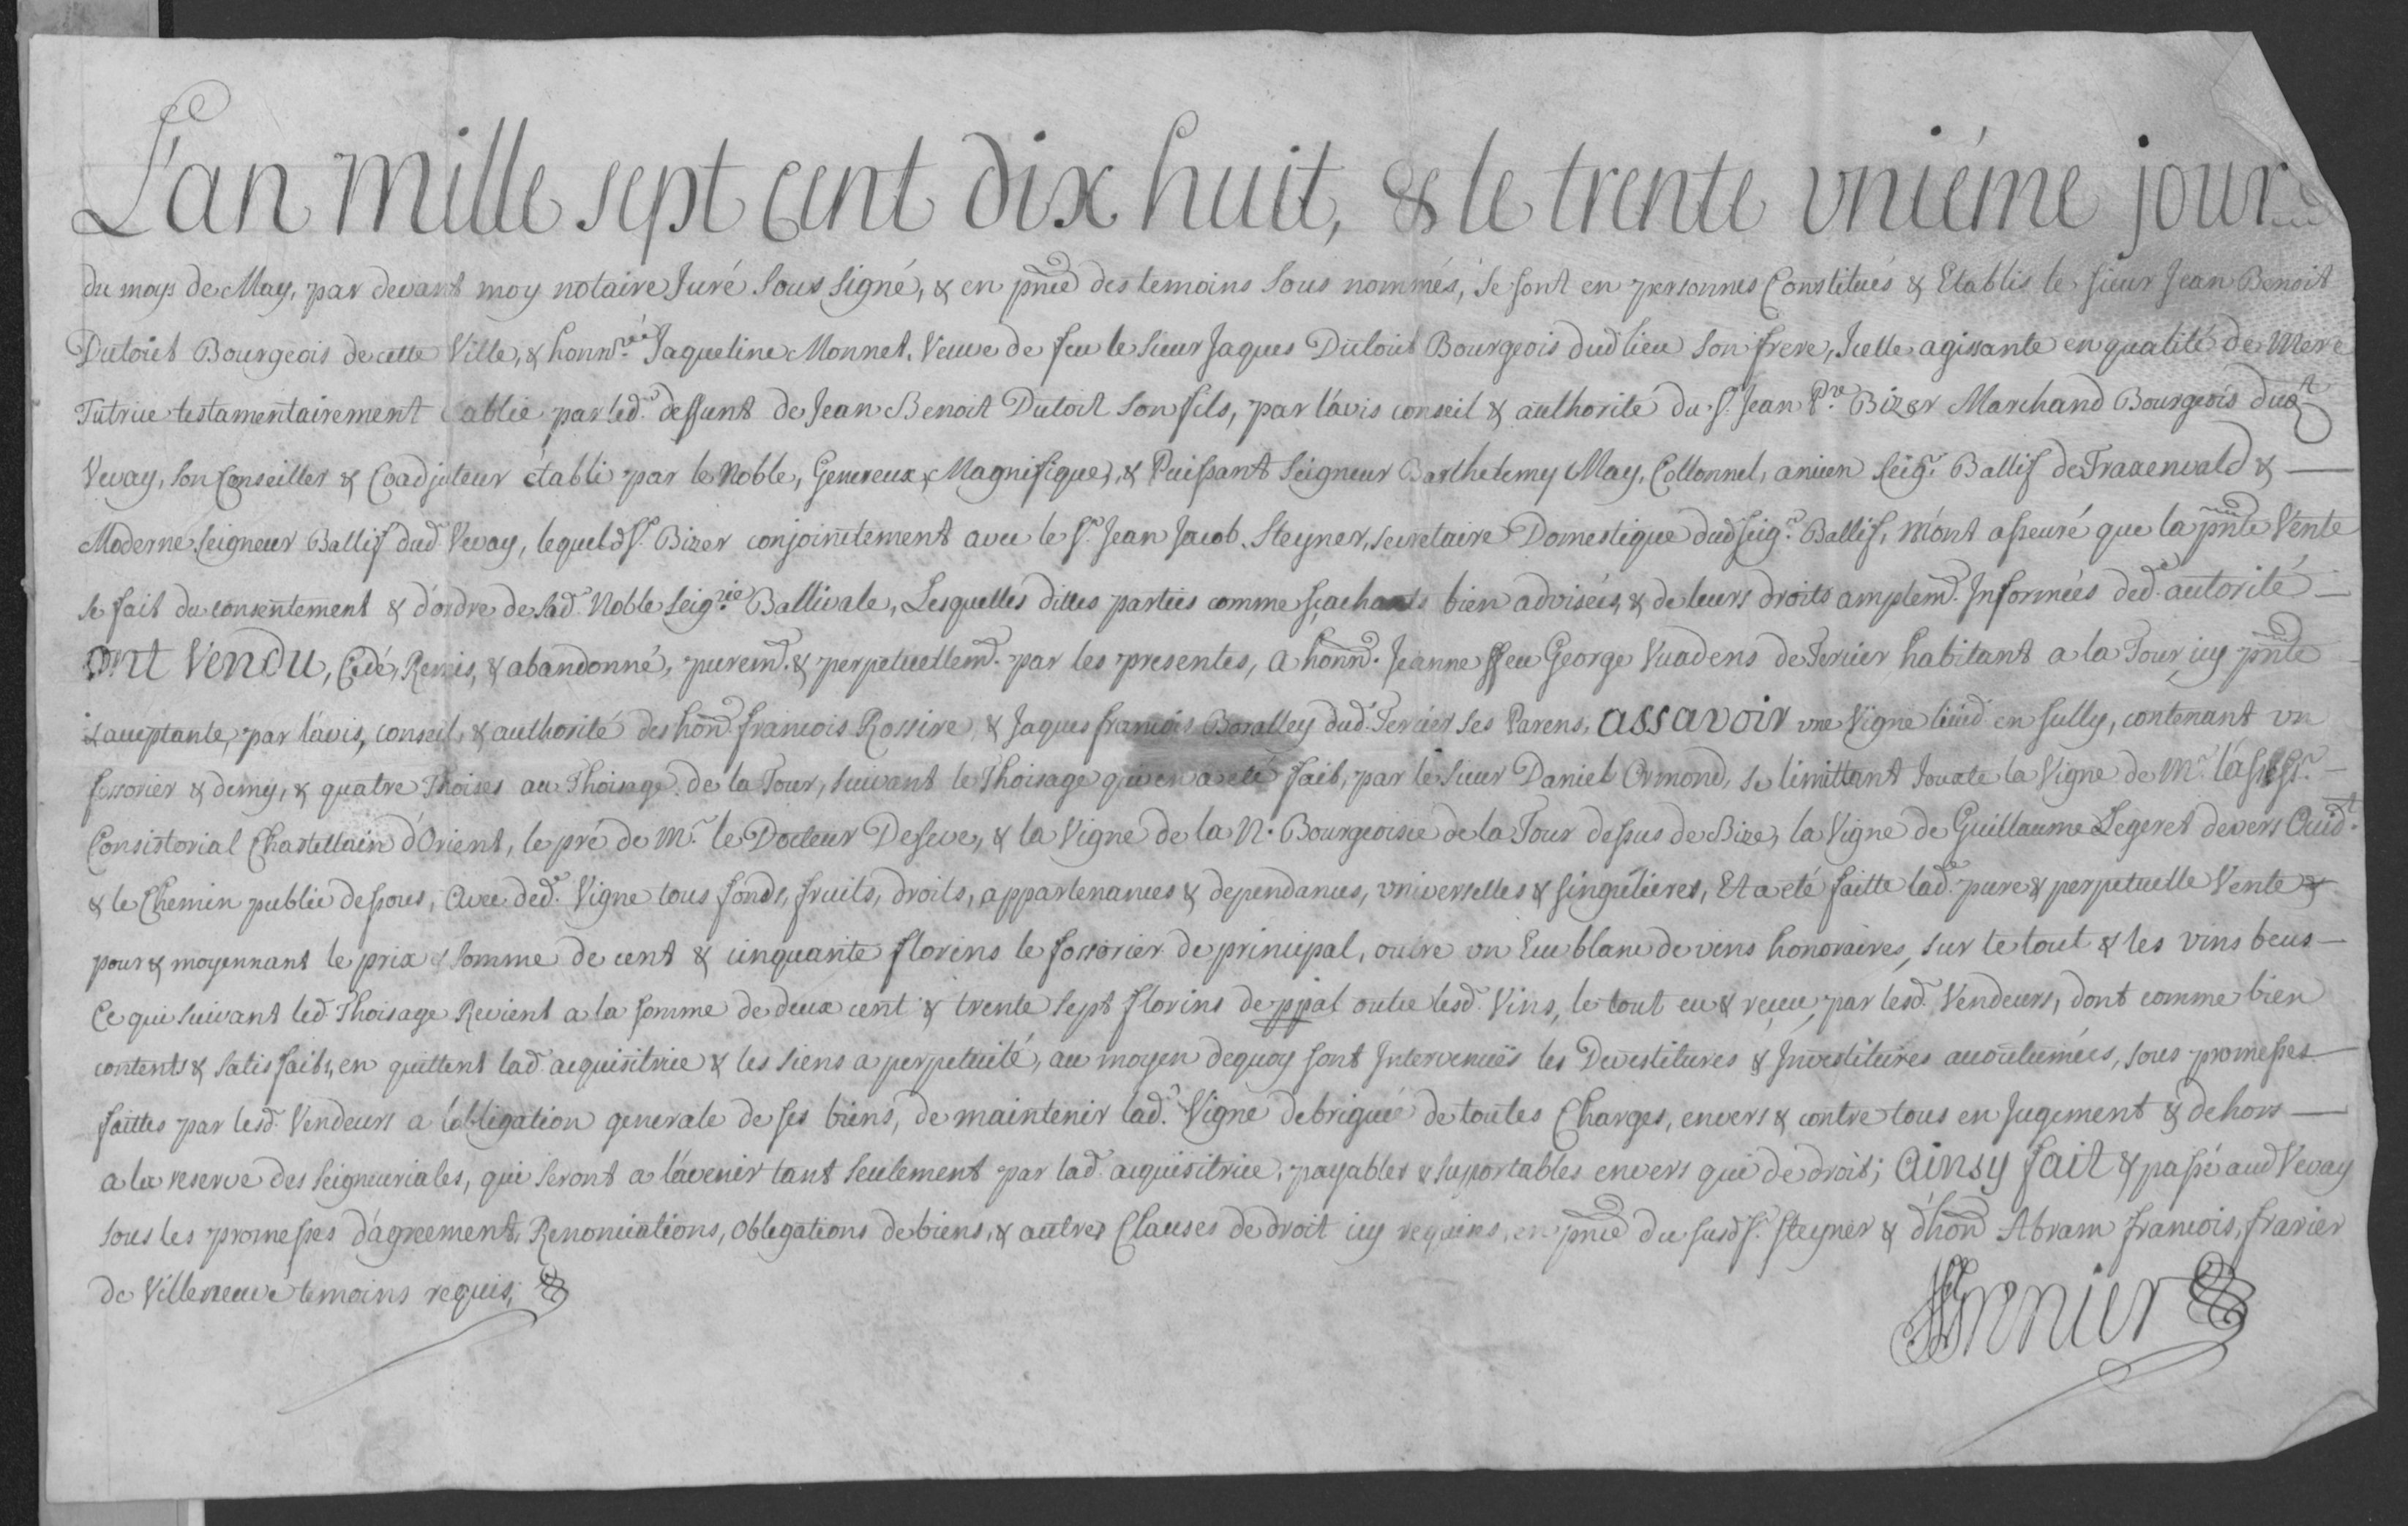 L'an mille sept cent dix huit, & le trente vniéme jour
du moys de May, par devant moy notaire Juré sous signé, & en pnce des temoins sous nommés, se sont en personnes Constitués & Etablis le sieur Jean Benoit
Dutoit Bourgeois de cette Ville, & honn.rée Jaqueline Monnet, Veuve de feu le sieur Jaques Dutoit Bourgeois dud lieu son frere, Icelle agissante en qualité de Mére
Tutrice testamentairement établie par led. deffunt de Jean Benoit Dutoit son fils, par l'avis conseil & authorité du Sr. Jean Bizer Marchand Bourgeois dud.t
Vevay, son Conseiller & Coadjuteur établi par le Noble, Genereux, Magnifique, & Puissant Seigneur Barthelemy May, Collonnel, ancien seigr. Ballif de Traxenvald &
Moderne Seigneur Ballif dud Vevay, lequel d Sr. Bizer conjoinctement avec le Sr. Jean Jacob Steyner, secretaire Domestique dud seigr. Ballif, m'ont asseuré que la pnte Vente
se fait du consentement & d'ordre de lad. Noble Seig.rie Ballivale, Lesquelles dittes parties comme sçachants bien advisées, & de leurs droits amplemd. Informées ded. autorité
Ont Vendu, Cédé, Remis, & abandonné, puremd. & perpetuellemd. par les presentes, a honnd. Jeanne ffeu George Vuadens de Tercier habitant a la Tour icy pnte
& acceptante, par l'avis, conseil, & authorité des hond. francois Rossire, & Jaques francois Baralley dud. Tercier ses Parens, assavoir vne Vigne lieud. en sully, contenant vn
fossorier & demy, & quatre Thoises au Thoisage de la Tour, suivant le Thoisage qui en a eté fait, par le sieur Daniel Ormond, se limittant Jouxte la Vigne de Mr. l'assessr.
Consistorial Chastellain d'Orient, le pré de Mr. le Docteur Deseve, & la Vigne de la N. Bourgeoisie de la Tour dessus de Bize, la Vigne de Guillaume Legeret devers Ouidt.
& le Chemin public dessous, Avec ded. Vigne tous fonds, fruits, droits, appartenances & dependances, vniverselles & singulieres, Et a eté faitte lade. pure & perpetuelle Vente &
pour & moyennant le prix & somme de cent & cinquante florins le fossorier de principal, outre vn Ecu blanc de vins honoraires, sur le tout & les vins beus
Ce qui suivant led. Thoisage Revient a la somme de deux cent & trente sept florins de ppal outre lesd. Vins, le tout eu & reçeu, par lesd. Vendeurs, dont comme bien
contents & satisfaits, en quittent lad. acquisitrice & les siens a perpetuité, au moyen dequoy sont Intervenuës les Devestitures & Investitures accoutumées, sous promesses
faittes par lesd. Vendeurs a l'obligation generale de ses biens, de maintenir lade. Vigne debriguée de toutes Charges, envers & contre tous en Jugement & dehors
a la reserve des Seigneuriales, qui seront a l'avenir tant seulement par lad. acquisitrice, payables & supportables envers qui de droit; Ainsy fait & passé aud Vevay
sous les promesses d'agreement, Renonciations, Obligations de biens, & autres Clauses de droit icy requises, en pnce du susd Sr. Steyner & d'hond Abram francois,
de Villeneuve temoins requis;